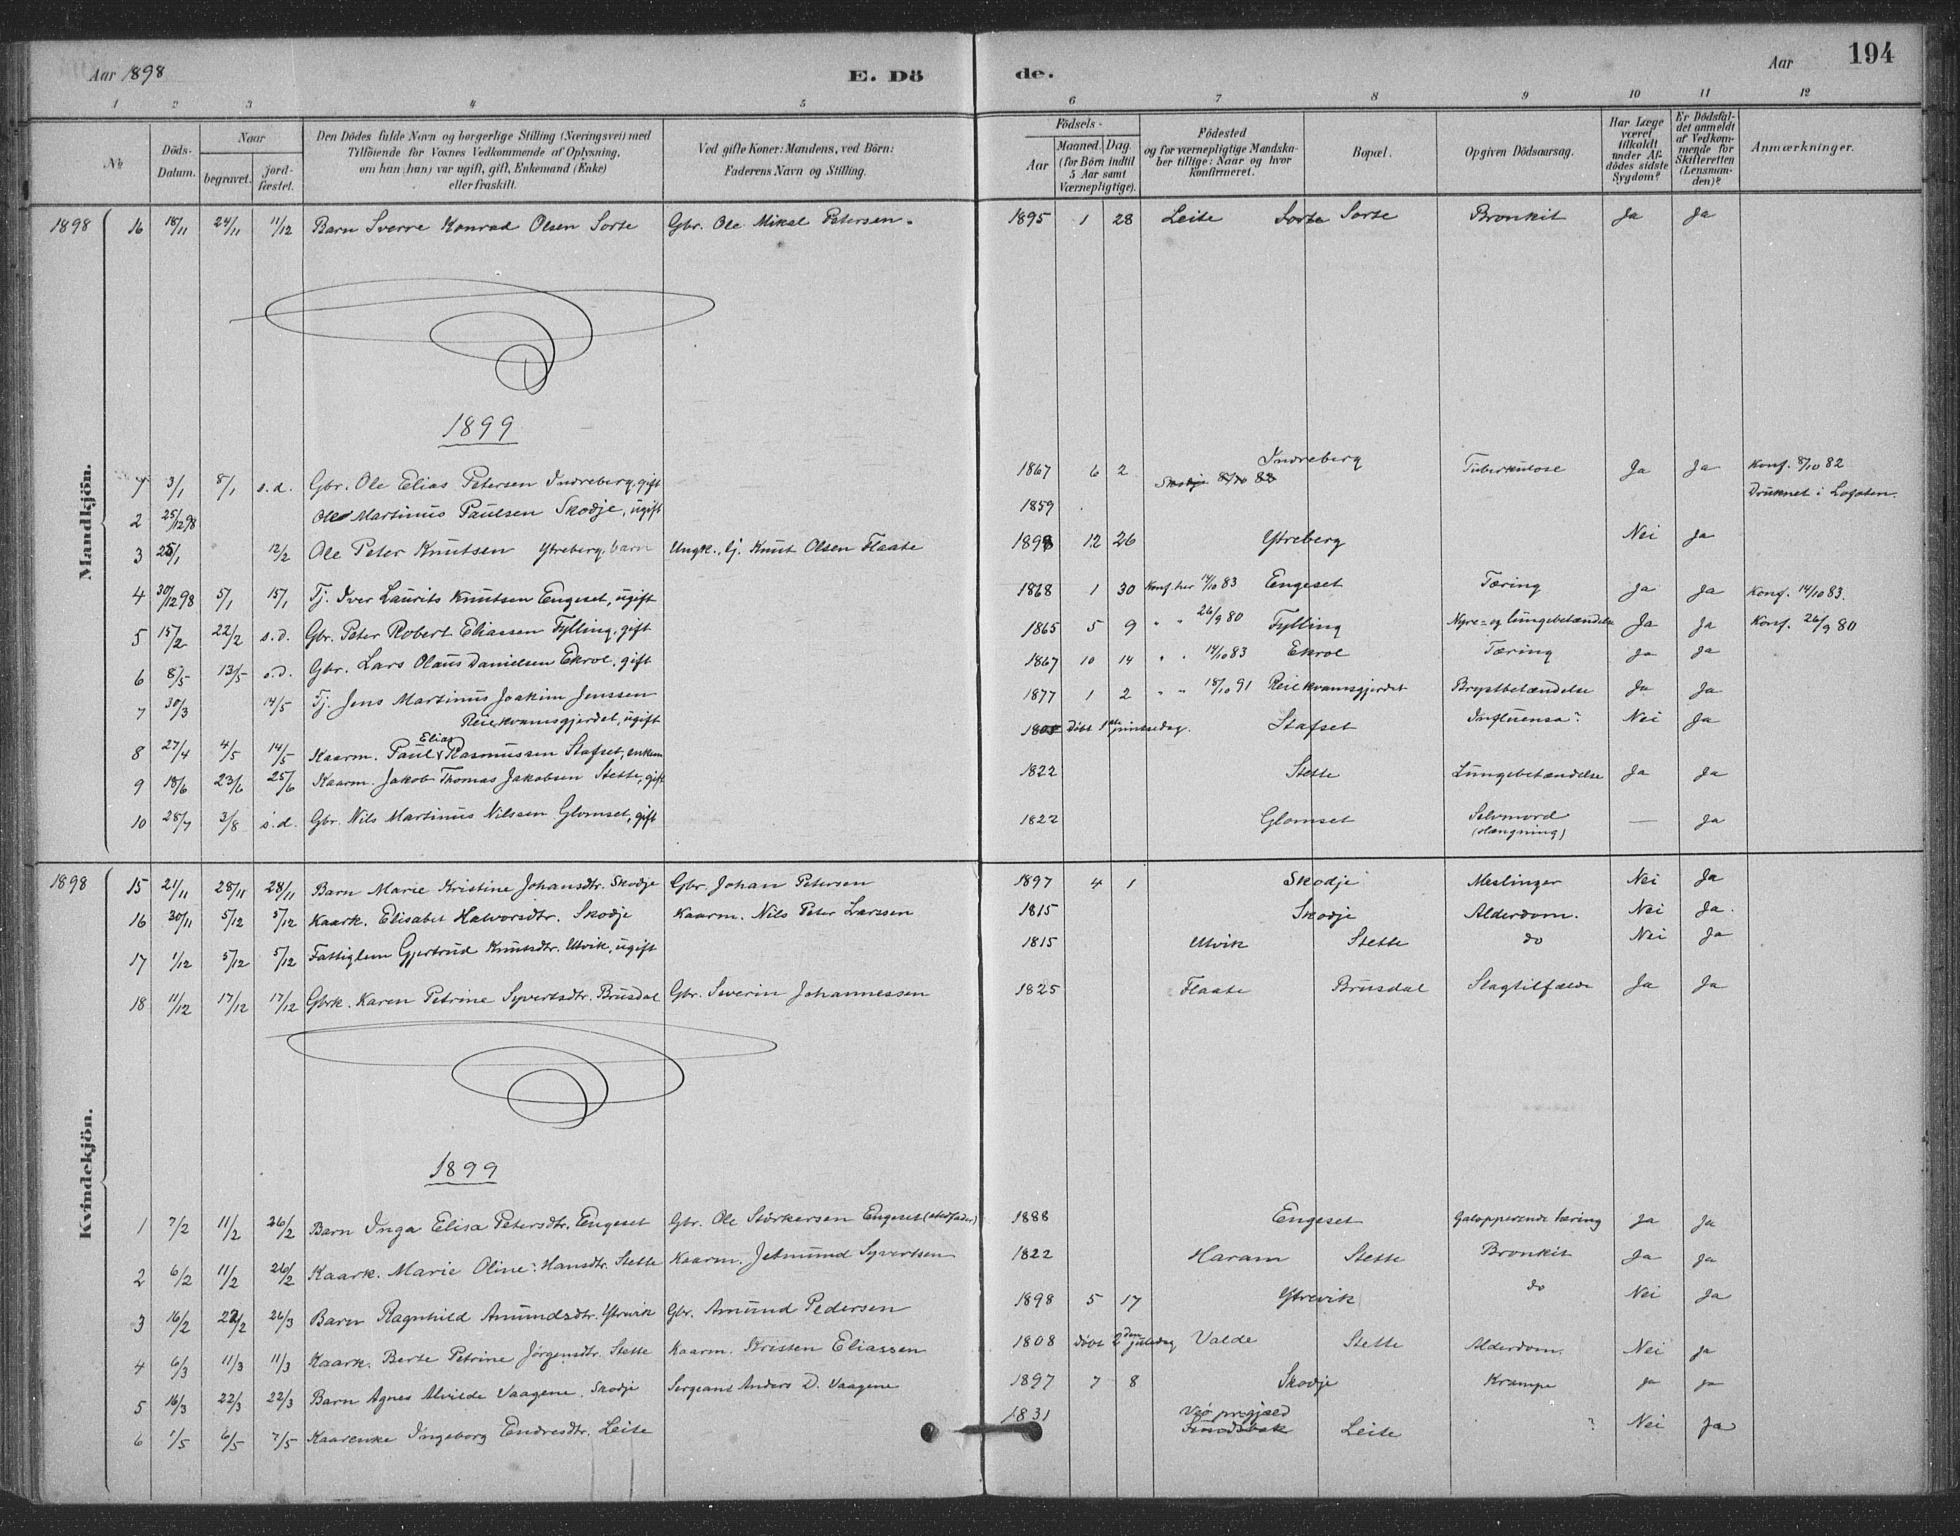 Aar 1898
E. Dö
de.
Aar
194
1 2 3 4 5 6 7 8 9 10 11 12
No
Döds-Datum.
Naar
begravet.
jord-fæstet.
Den Dödes fulde Navn og borgerlige Stilling (Næringsvei) med
Tilföiende for Voxnes Vedkommende af Oplysning,
om han (hun) var ugift, gift, Enkemand (Enke)
eller fraskilt.
Ved gifte Koner: Mandens, ved Börn:
Faderens Navn og Stilling.
Födsels-
Aar
Maaned. Dag.
(for Börn indtil
5 Aar samt
Værnepligtige).
Födested
og for værnepligtige Mandska-
ber tillige: Naar og hvor
konfirmeret.
Bopæl.
Opgiven Dödsaarsag.
Har Læge
været
tilkaldt
under Af-
dödes sidste
Sygdom?
Er Dödsfal-
det anmeldt
af Vedkom-
mende for
Skifteretten
(Lensman-
den)?
Anmærkninger.
Mandkjön.
1898 16 18/11 24/11 11/12 Barn Sverre Konrad Olsen Sorte Gbr. Ole Mikal Petersen. 1895 1 28 Leite Sorte Sorte Bronkit Ja Ja
1899
1 3/1 8/1 s.d. Gbr. Ole Elias Petersen Indreberg, gift 1867 6 2 Skodje 8/10 82 Indreberg Tuberkulose Ja Ja Konf. 8/10 82
2 25/12 98 Ole Martinus Paulsen Skodje, ugift 1859 Druknet i Lofoten.
3 25/1 12/2 Ole Peter Knutsen Ytreberg, barn Ungk., tj. Knut Olsen Flaate 1898 12 26 Ytreberg Nei Ja
4 30/12 98 5/1 15/1 Tj. Iver Laurits Knutsen Engeset, ugift 1868 1 30 Konf. her 14/10 83 Engeset Tæring Ja Ja Konf. 14/10 83.
5 15/2 22/2 s.d. Gbr. Peter Robert Eliassen Fylling, gift 1865 5 9 " " 26/9 80 Fylling Nyre= og lungebetændelse Ja Ja Konf. 26/9 80
6 8/5 13/5 s.d. Gbr. Lars Olaus Danielsen Ekrol, gift 1867 10 14 " " 14/10 83 Ekrol Tæring Ja Ja
7 30/3 14/5 Tj. Jens Martinus Joakim Jenssen
Reiekvamsgjerdet, ugift 1877 1 2 " " 18/10 91 Reiekvamsgjerdet Brystbetændelse Ja Ja
8 27/4 4/5 14/5 Kaarm. Paul Elias Rasmussen Stafset, enkem Döbt 1ste pintsedag. Stafset Influensa Nei Ja
9 18/6 23/6 25/6 Kaarm. Jakob Thomas Jakobsen Stette, gift 1822 Stette Lungebetændelse Ja Ja
10 28/7 3/8 s.d. Gbr. Nils Martinus Nilssen Glomset, gift 1822 Glomset Selvmord
(hængning) — Ja
Kvindekjön.
1898 15 21/11 28/11 28/11 Barn Marie Kristine Johansdtr. Skodje Gbr. Johan Petersen 1897 4 1 Skodje Meslinger Nei Ja
16 30/11 5/12 5/12 Kaark. Elisabet Halvorsdtr. Skodje Kaarm. Nils Peter Larssen 1815 Skodje Alderdom. Nei Ja.
17 1/12 5/12 5/12 Fattiglem Gjertrud Knutsdtr. Utvik, ugift 1815 Utvik Stette do Nei Ja
18 11/12 17/12 17/12 Gbrk. Karen Petrine Syvertsdtr. Brusdal Gbr. Severin Johannessen 1825 Flaate Brusdal Slagtilfælde Ja Ja
1899
1 7/2 11/2 26/2 Barn Inga Elisa Petersdtr. Engeset Gbr. Ole Storkersen Engeset (stedfader) 1888 Engeset Galopperende tæring Ja Ja
2 6/2 11/2 26/2 Kaark. Marie Oline Hansdtr. Stette Kaarm. Jetmund Syvertsen 1822 Haram Stette Bronkit Ja Ja
3 16/2 22/2 26/3 Barn Ragnhild Amundsdtr. Ytrevik Gbr. Amund Pedersen 1898 5 17 Ytrevik do Nei Ja
4 6/3 11/3 11/3 Kaark. Berte Petrine Jörgensdtr. Stette Kaarm. Kristen Eliassen 1808 döbt 2den juledag Valde Stette Alderdom. Nei Ja
5 16/3 22/3 22/3 Barn Agnes Alvilde Vaagene. Skodje Sergeant Anders D. Vaagene 1897 7 8 Skodje Krampe Ja Ja
6 1/5 6/5 7/5 Kaarenke Ingeborg Endresdtr. Leite 1831 Veö prgjæld Leite ? Nei Ja